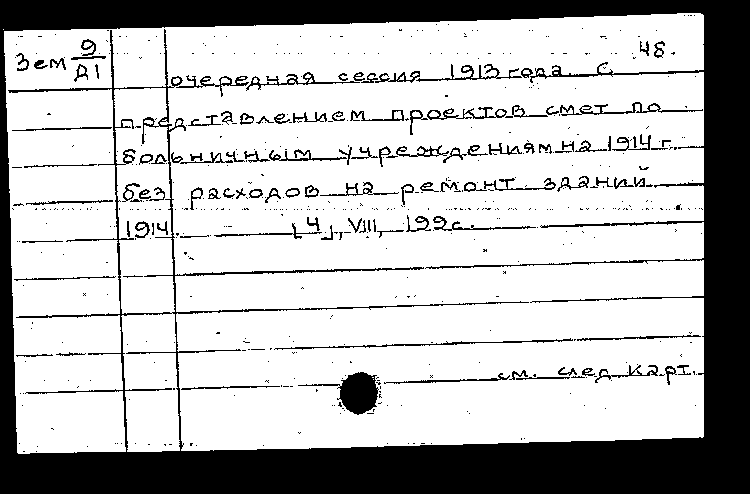 48.
Зем 9/Д1
очередная сессия 1913 года. С
представлением проектов смет по
больничным учреждениям на 1914 г.
без расходов на ремонт зданий
1914. [4], VIII, 199 с.
см. след. карт.